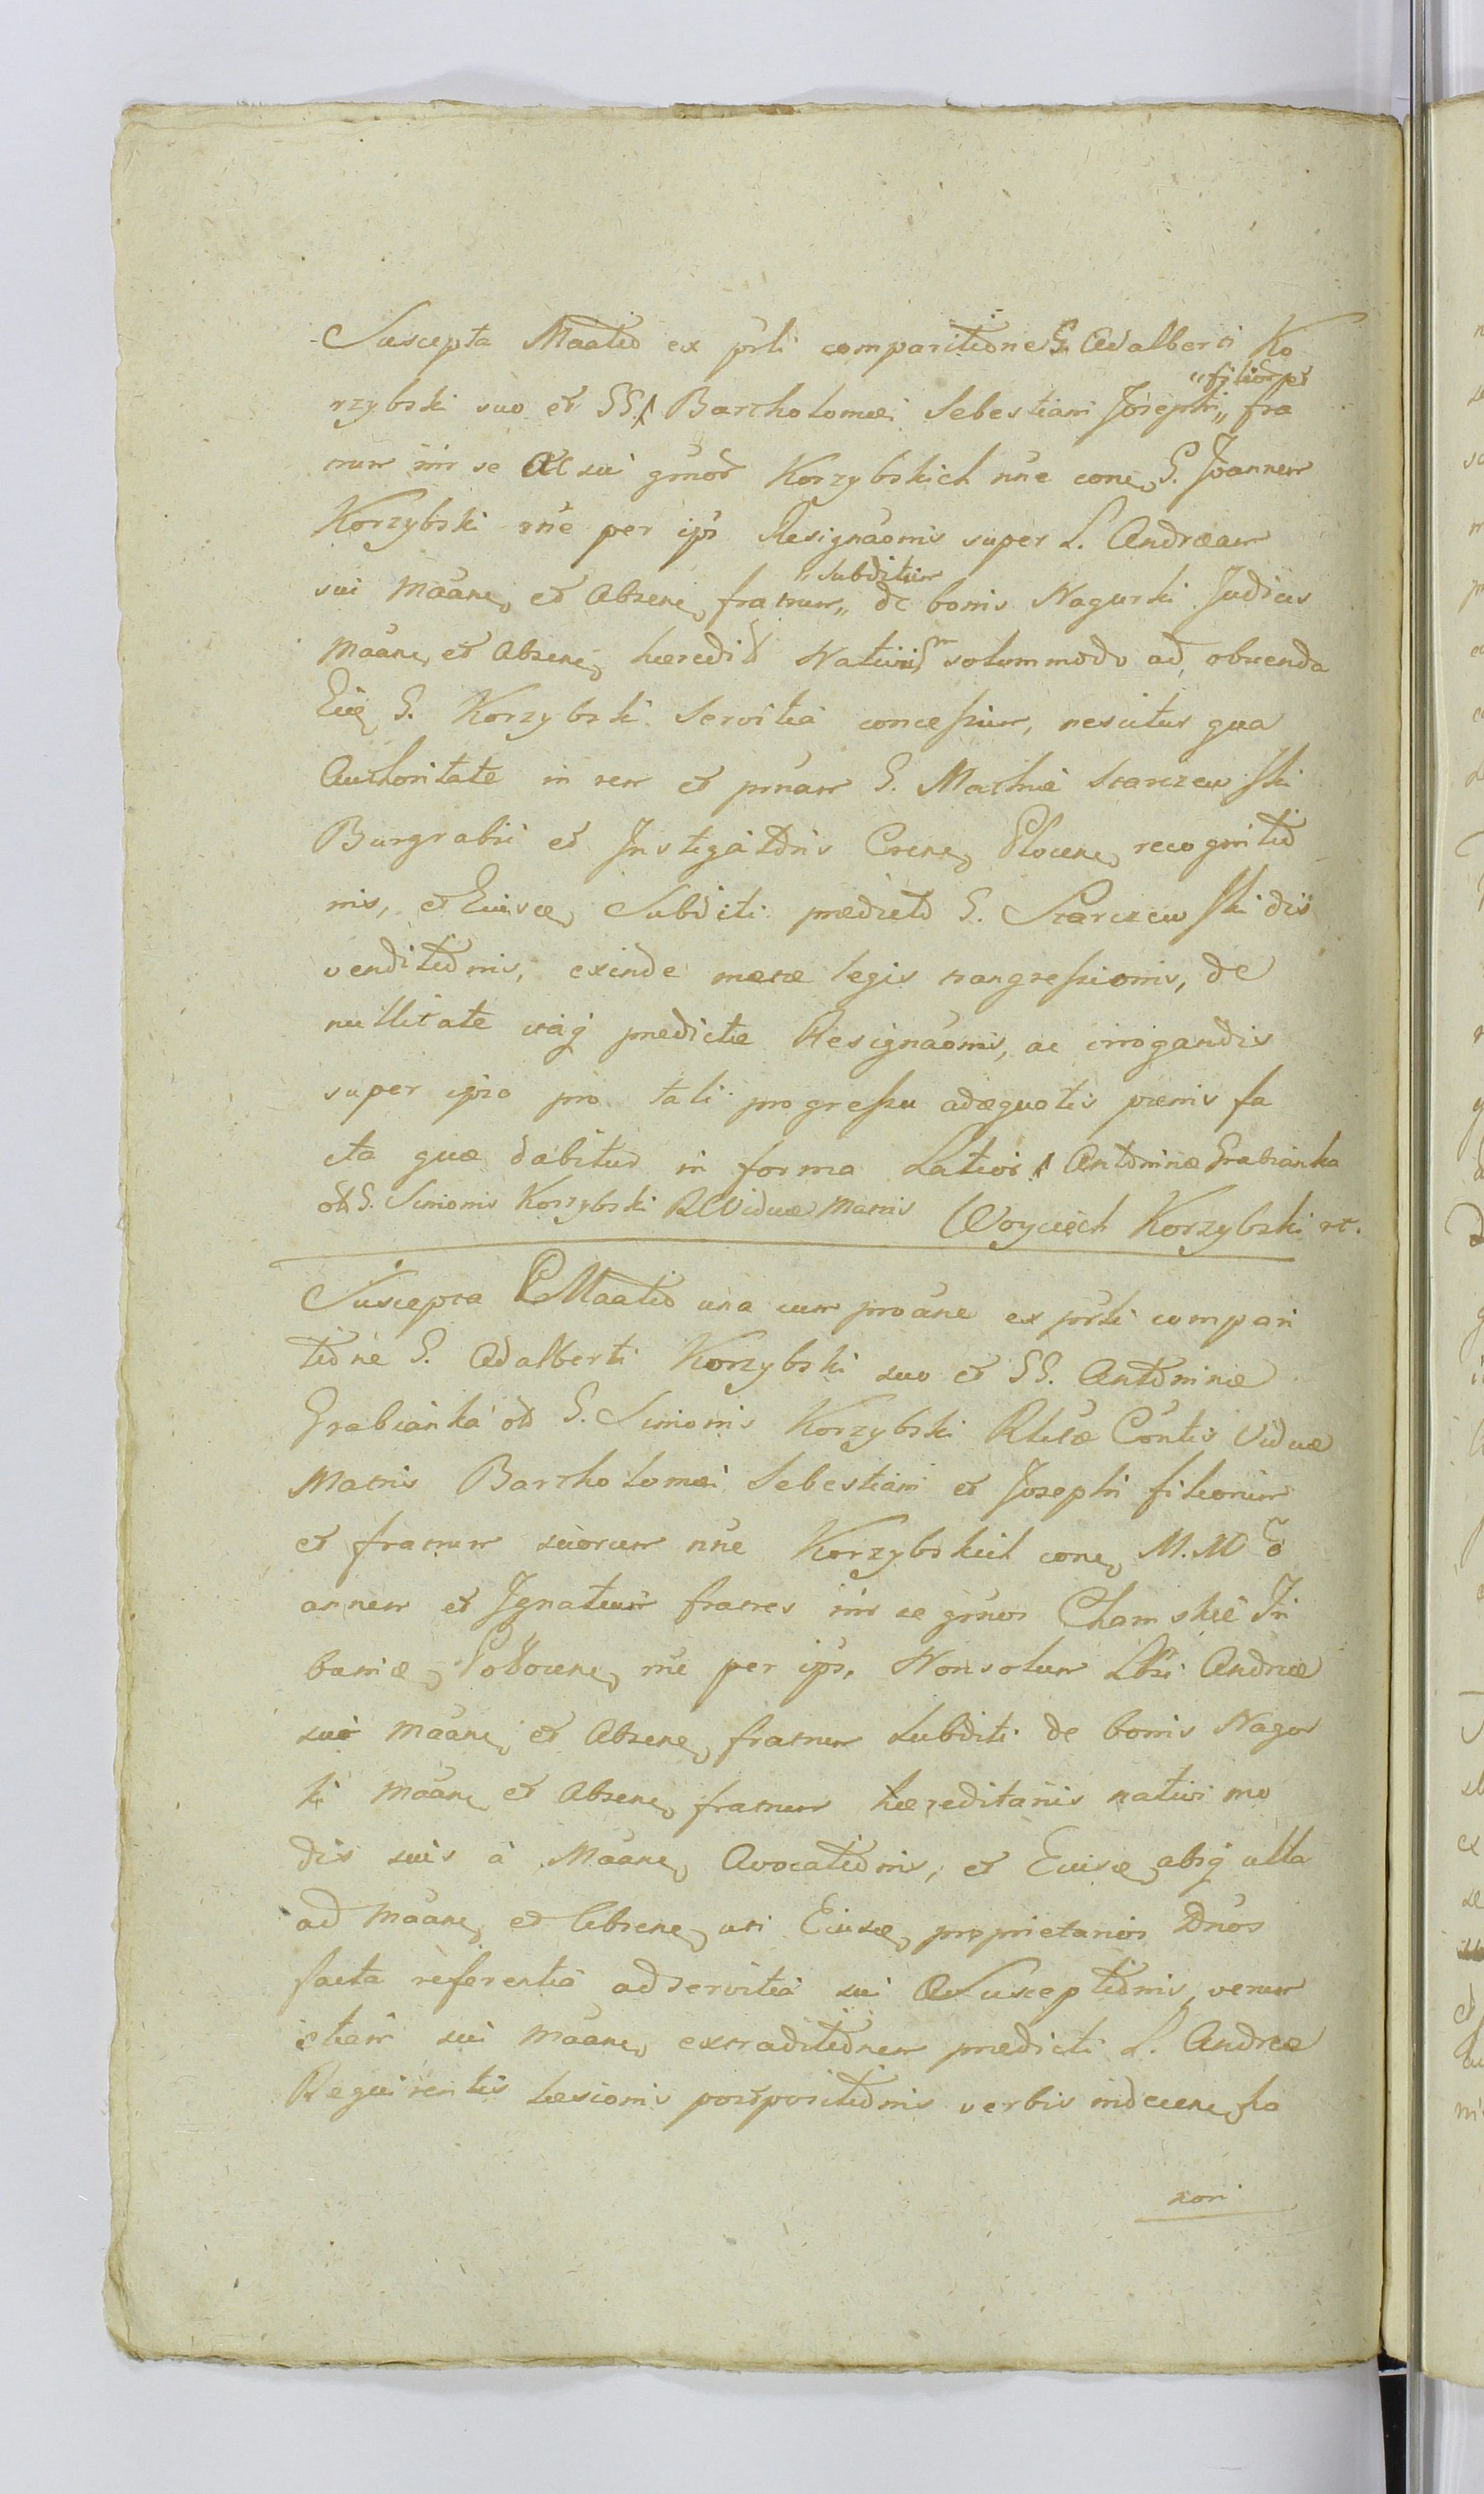 Suscepta Maatio ex prli comparitione G. Adalberti Ko
rzybski suo et GG. Bartholomæi Sebestiani Josephi „ fra
„ filior et
trum inr se ac sui gmor Korzybskich nne cone G. Joannem
Korzybski rne per ips Resignaonis super L. Andræam
sui Maane et Absene fratrum „ de bonis Nagurki Judicis
„ subditum
Maane et Absene hæredit Nativu solummodo ad obeunda
Eius G. Korzybski servitia concessum, nescitur qua
Authoritate in rem et prnam G. Mathiæ Starczewski
Burgrabii et Instigatoris Crene Plocene recognitio
nis, et Eiusce Subditi prædicto G. Starczewski
venditionis, exinde legis trangressionis, de
nullitate itaq prædictæ Resignaonis, ac irrogandis
super ipso pro tali progressu adæquatis pœnis fa
cta quæ dabitur in forma Latiori Antoninæ Grabianka
ol G. Simonis Korzybski R Viduæ Matris Woyciech Korzybski
Suscepta Maatio una cum proane ex prli compari
tione G. Adalberti Korzybski suo et GG. Antoninæ
Grabianka ol G. Simonis Korzybski Rlicæ Contis Viduæ
Matris Bartholomæi Sebestiani et Josephi filiorum
et fratrum suorum nne Korzybskich cone M. M. Jo
annem et Ignatium fratres inr se gmnos Chamskie Tri
bunæ Podocene rne per ips. Non solum Lbri Andreæ
sui Maane et Absene fratrum subditi de bonis Nagur
ki Maane et Absene fratrum hæreditariis nativi mo
dis suis à Maane Avocationis, et Eiusce absq ulla
ad Maane et Absene uti Eiusce proprietarios Dnos
facta referentia ad servitia sui Susceptionis, verum
etiam sui Maane extraditionem prædicti L. Andreæ
Requirentis læsionis postpositionis verbis indecene ho
nori